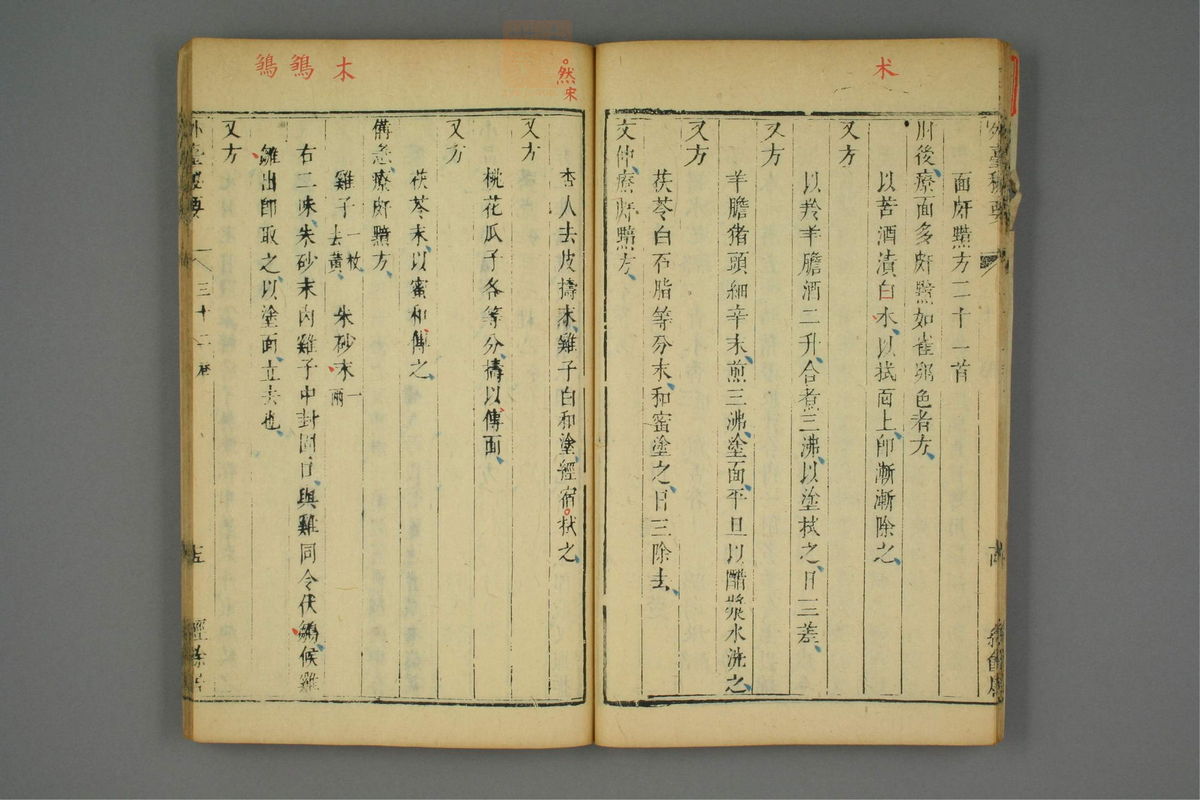 朮
外臺秘要
面皯䵳方二十一首
肘後療面多皯䵳如雀卵色者方
以苦酒漬白朮以拭面上卽漸漸除之
又方
以羚羊膽酒二升合煮三沸以塗拭之日三差
又方
羊膽猪頭細辛末煎三沸塗面平旦以醋漿水洗之
又方
茯苓白石脂等分末和蜜塗之日三除去
文仲療皯䵳方
然宋
杏人去皮擣末雞子白和塗經宿拭之
又方
桃花瓜子各等分擣以傅面
又方
茯苓末以蜜和傅之
備急療皯䵳方
木
雞子一枚去黃 朱砂末一兩
鵎
右二味朱砂末內雞子中封固口與雞同令伏鵎候雞
鵎
雛出卽取之以塗面立去也
又方
外臺祕要
三十二卷
經餘居